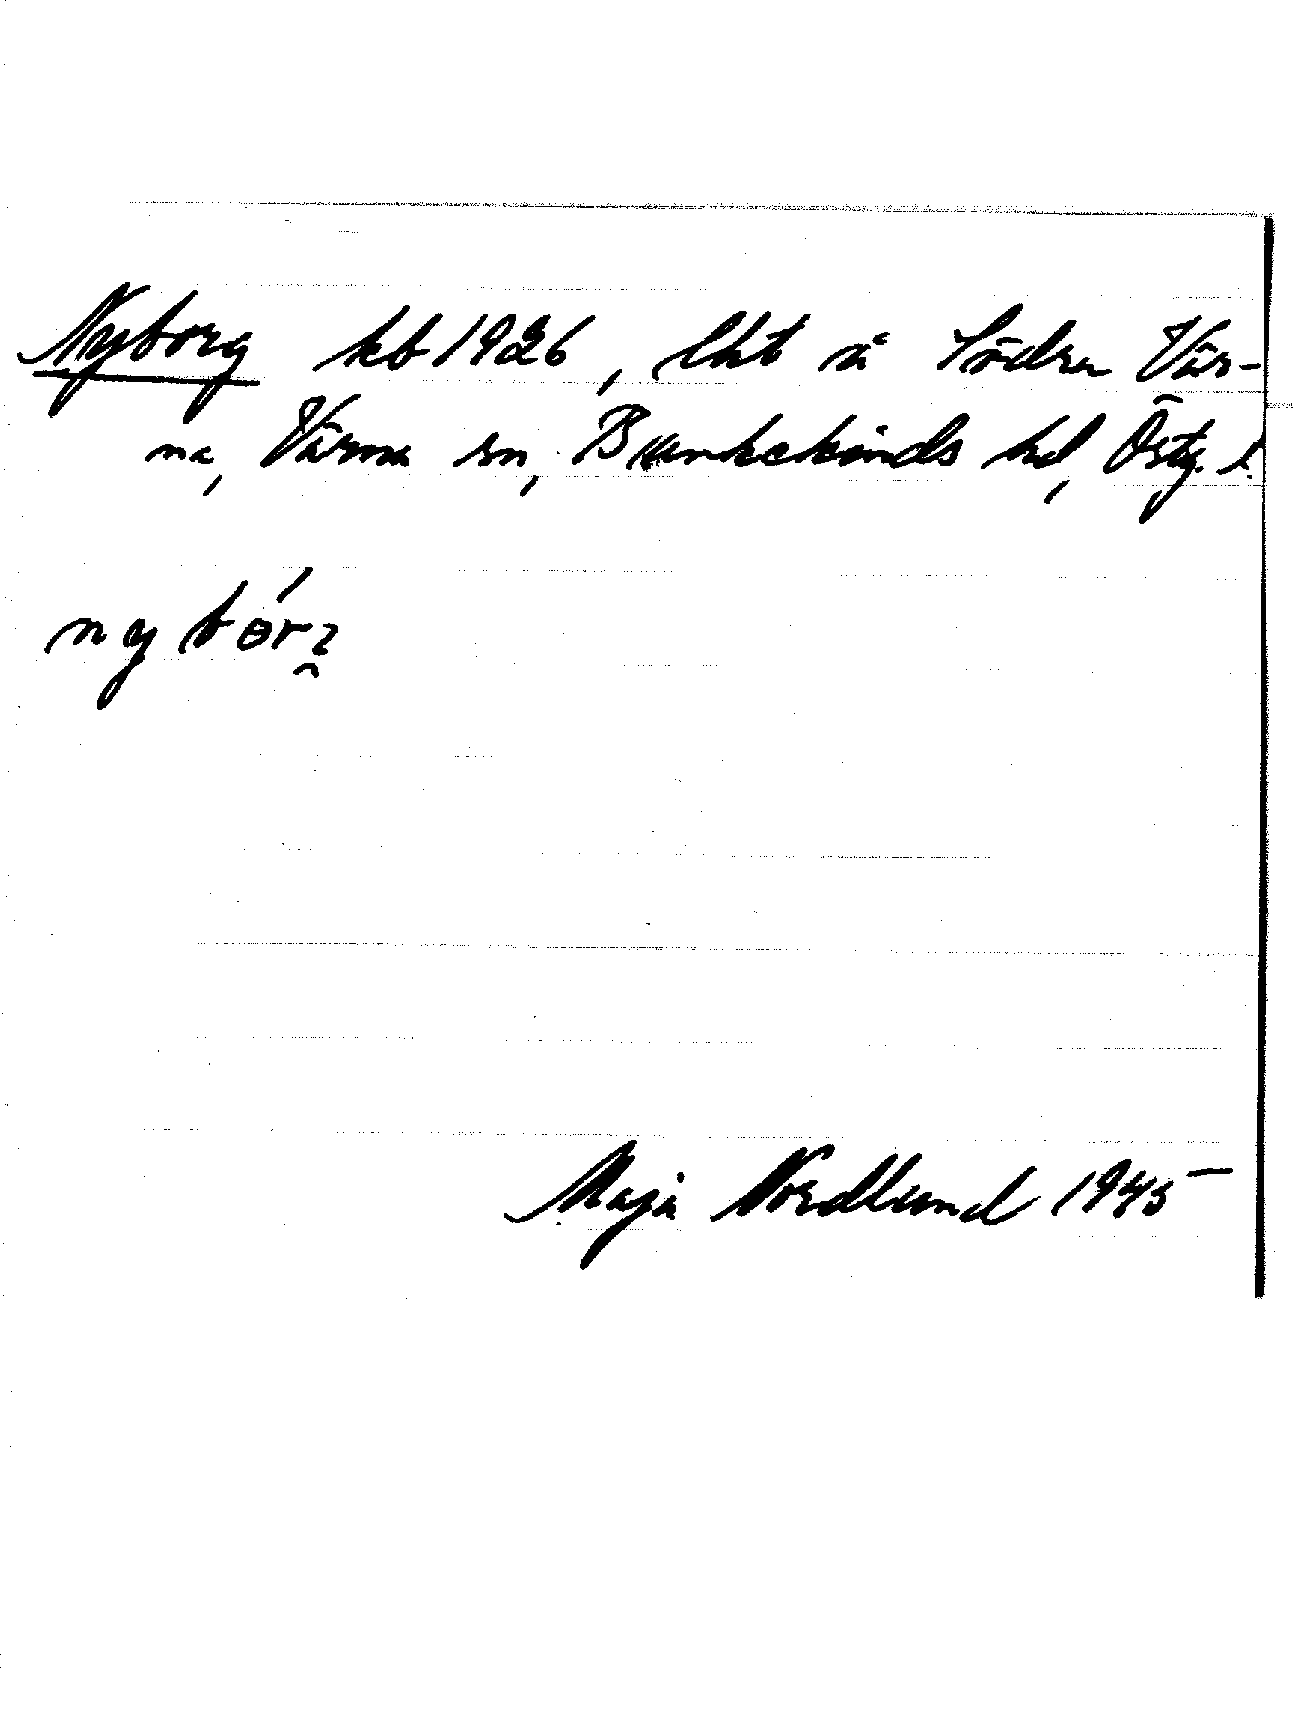 Nyborg kb 1926, lht å Södra Vår-
na, Vårna sn, Bankekinds hd, Östg. l.
nybór
Maja Nordlund 1945